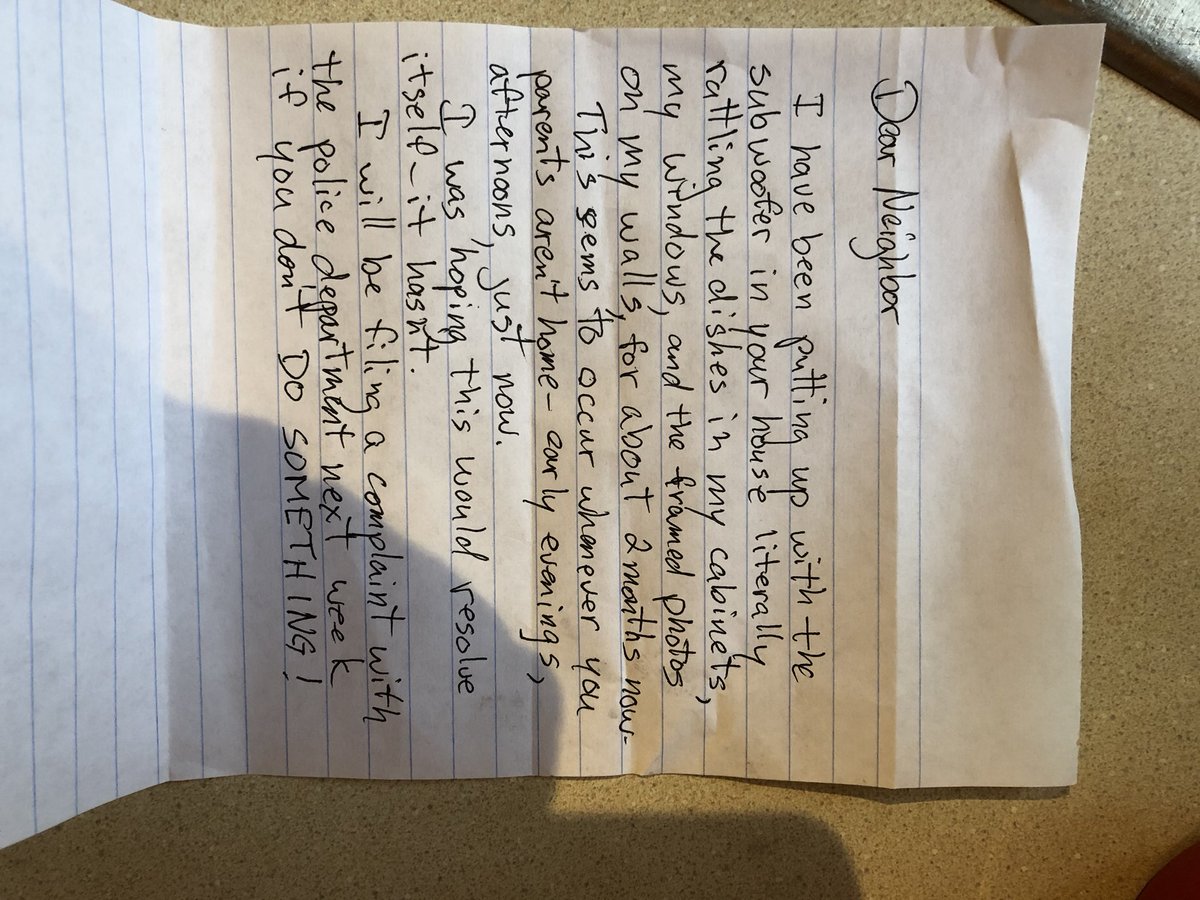 Dear Neighbor
I have been putting up with the
subwoofer in your house literally
rattling the dishes in my cabinets,
my windows, and the framed photos
on my walls, for about 2 months now.
This seems to occur whenever you
parents aren't home - early evenings,
afternoons, just now.
I was hoping this would resolve
itself - it hasn't.
I will be filing a complaint with
the police department next week
if you don't DO SOMETHING!